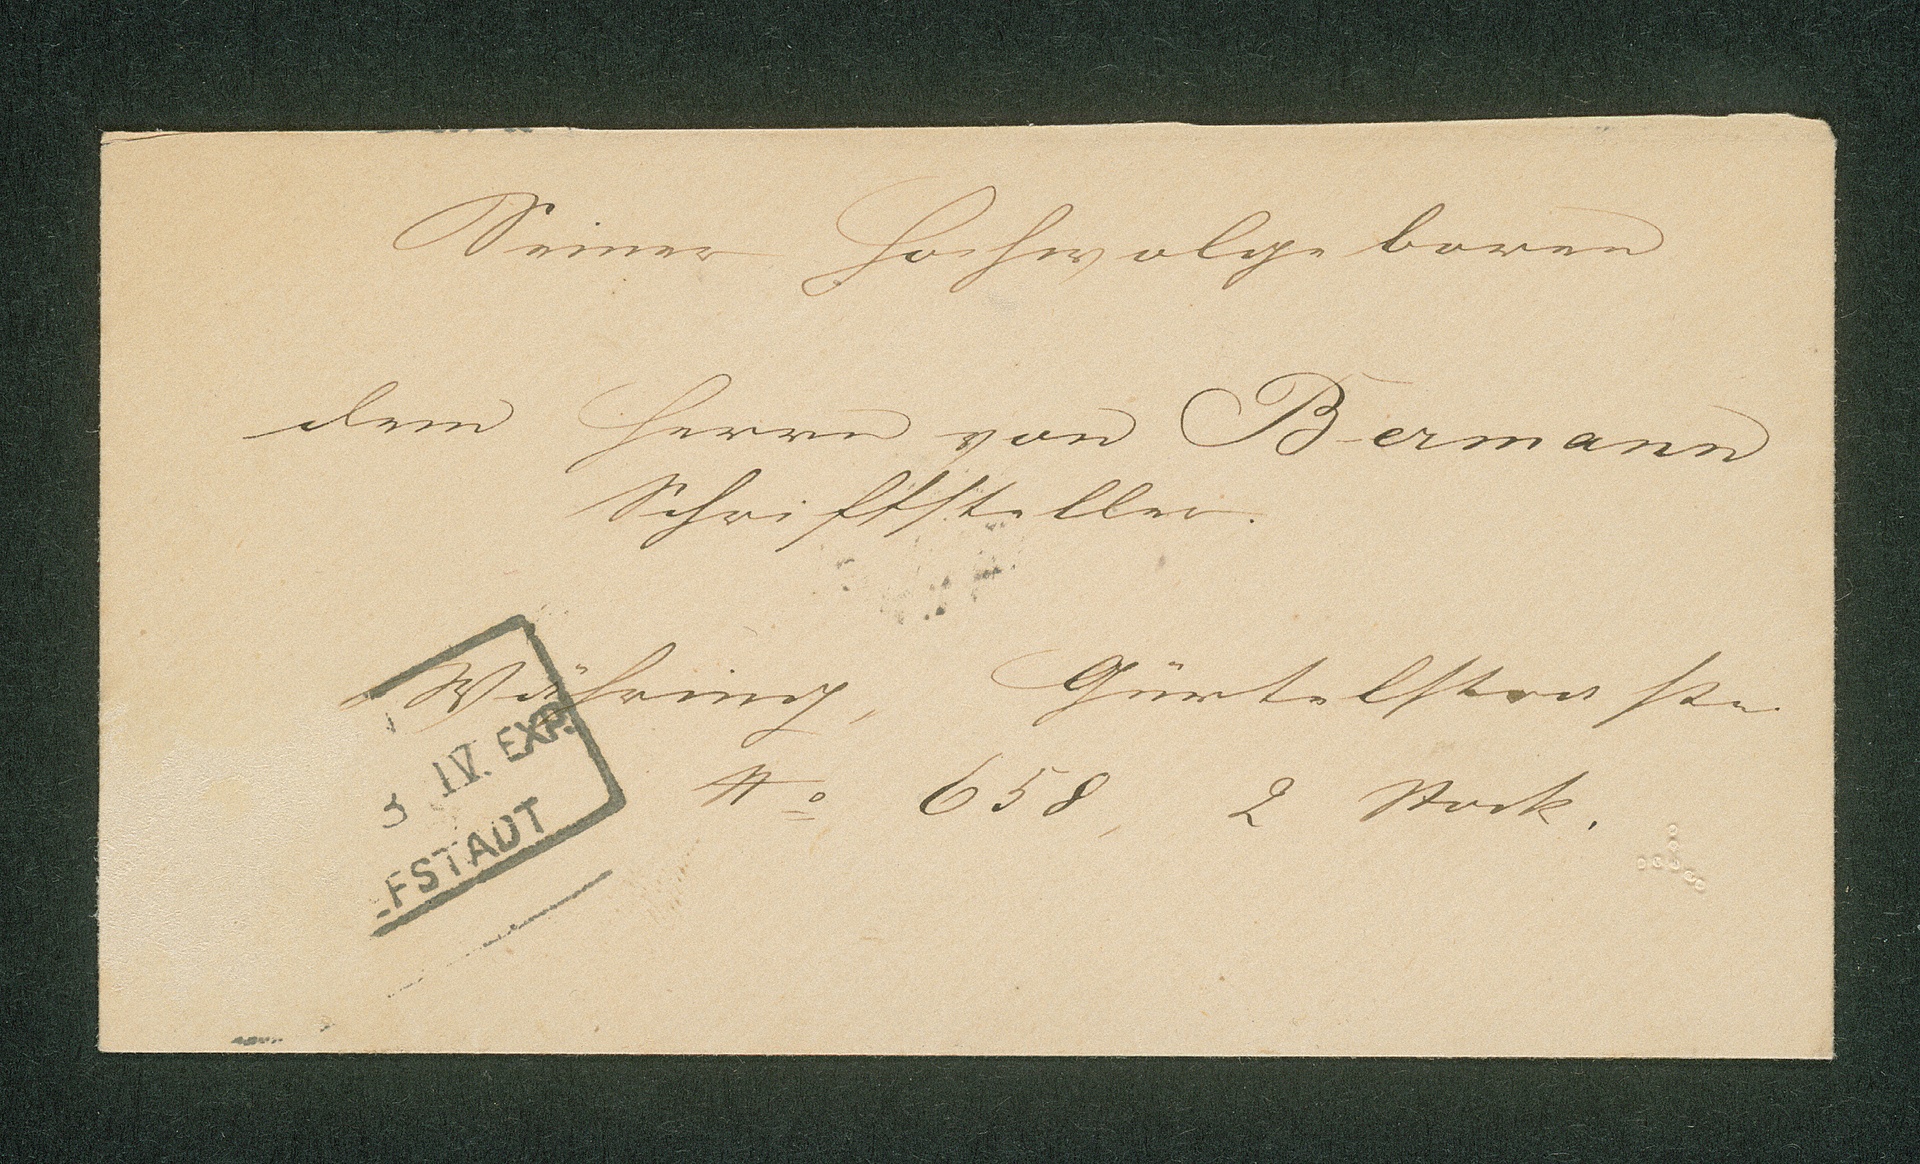 Seiner Hochwolgeboren
dem Herrn von Bermann
Schriftsteller.
Währing, Gürtelstrasse
No 658, 2 Stock.
3 IV. EXP.
FSTADT